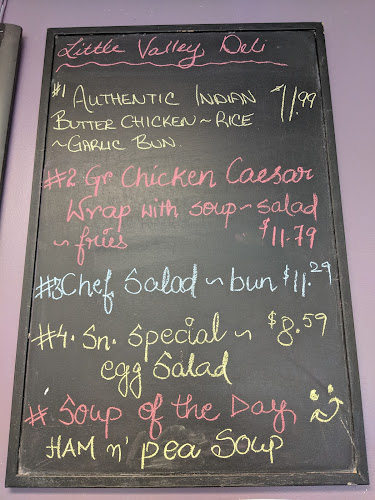 Little Valley Deli
#1 AUTHENTIC INDIAN $11.99
BUTTER CHICKEN ~ RICE
~ GARLIC BUN
#2 Gr Chicken Caesar
Wrap with soup ~ salad
~ fries $11.79
#3 Chef Salad ~ bun $11.29
#4. Sn. Special ~ $8.59
egg Salad
# Soup of the Day
HAM n' pea Soup